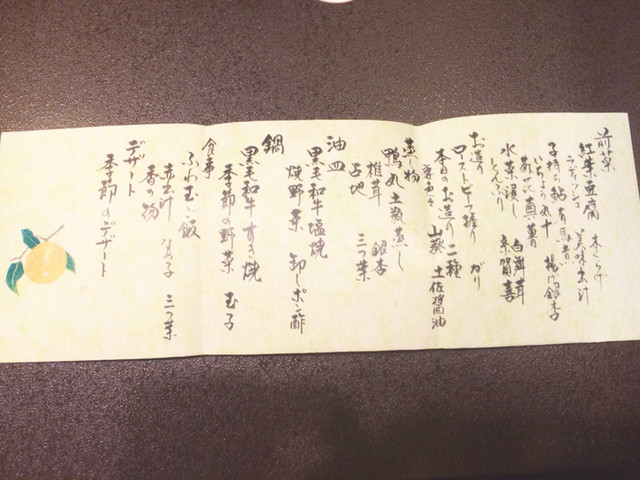 前菜
紅葉豆腐 木くらげ
ラディッシュ 美味出汁
子持ち鮎有馬煮
いちょう丸十 揚げ銀杏
菊花真薯
水菜浸し 白舞茸
とんぶり 糸賀喜
お造り
ローストビーフ握り がり
本日のお造り 二種
山葵 土佐醤油
蒸し物
鴨丸土瓶蒸し
椎茸 銀杏
占地 三つ葉
油皿
黒毛和牛塩焼
焼野菜 卸しポン酢
鍋
黒毛和牛すき焼
季節の野菜 玉子
食事
ふわ玉ご飯
赤出汁 なめ子 三つ葉
香の物
デザート
季節のデザート